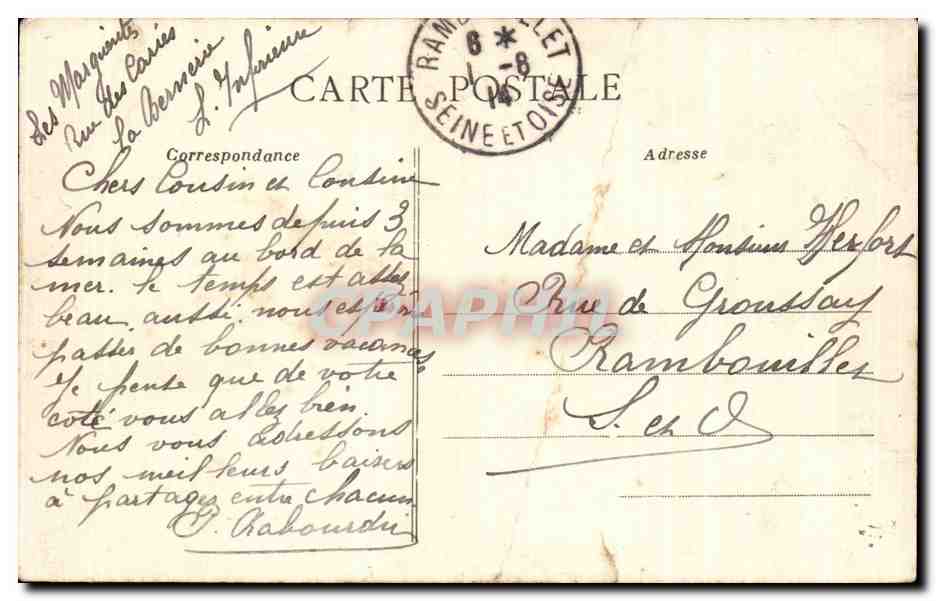 Les Marguerites
Rue des Caries
La Bernerie
L. Inférieure
RAMBOUILLET
6 *
1 -8
14
SEINE ET OISE
CARTE POSTALE
Correspondance
Adresse
Chers Cousin et Cousine
Nous sommes depuis 3
semaines au bord de la
mer. le temps est assez
beau aussi nous espérons
passer de bonnes vacances
Je pense que de votre
coté vous allez bien.
Nous vous adressons
nos meilleurs baisers
à partager entre chacun
P. Rabourdin
Madame et Monsieur
Rue de Groussay
Rambouillet
S. et O
CPAPHIL